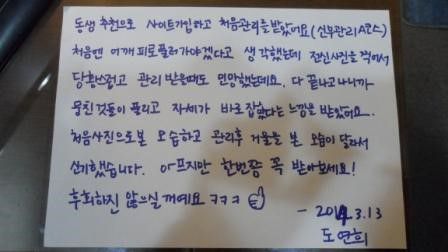 동생 추천으로 사이트가입하고 처음관리를 받았어요 (신부관리A코스)
처음엔 어깨 피로풀러가야겠다고 생각했는데 전신사진을 찍어서
당황스럽고 관리 받을때도 민망했는데요. 다 끝나고나니까
뭉친것들이 풀리고 자세가 바로 잡혔다는 느낌을 받았어요.
처음사진으로본 모습하고 관리후 거울을 본 모습이 달라서
신기했습니다. 아프지만 한번쯤 꼭 받아보세요!
후회하진 않으실 꺼예요 ㅋㅋㅋ
- 2014.3.13
도연희